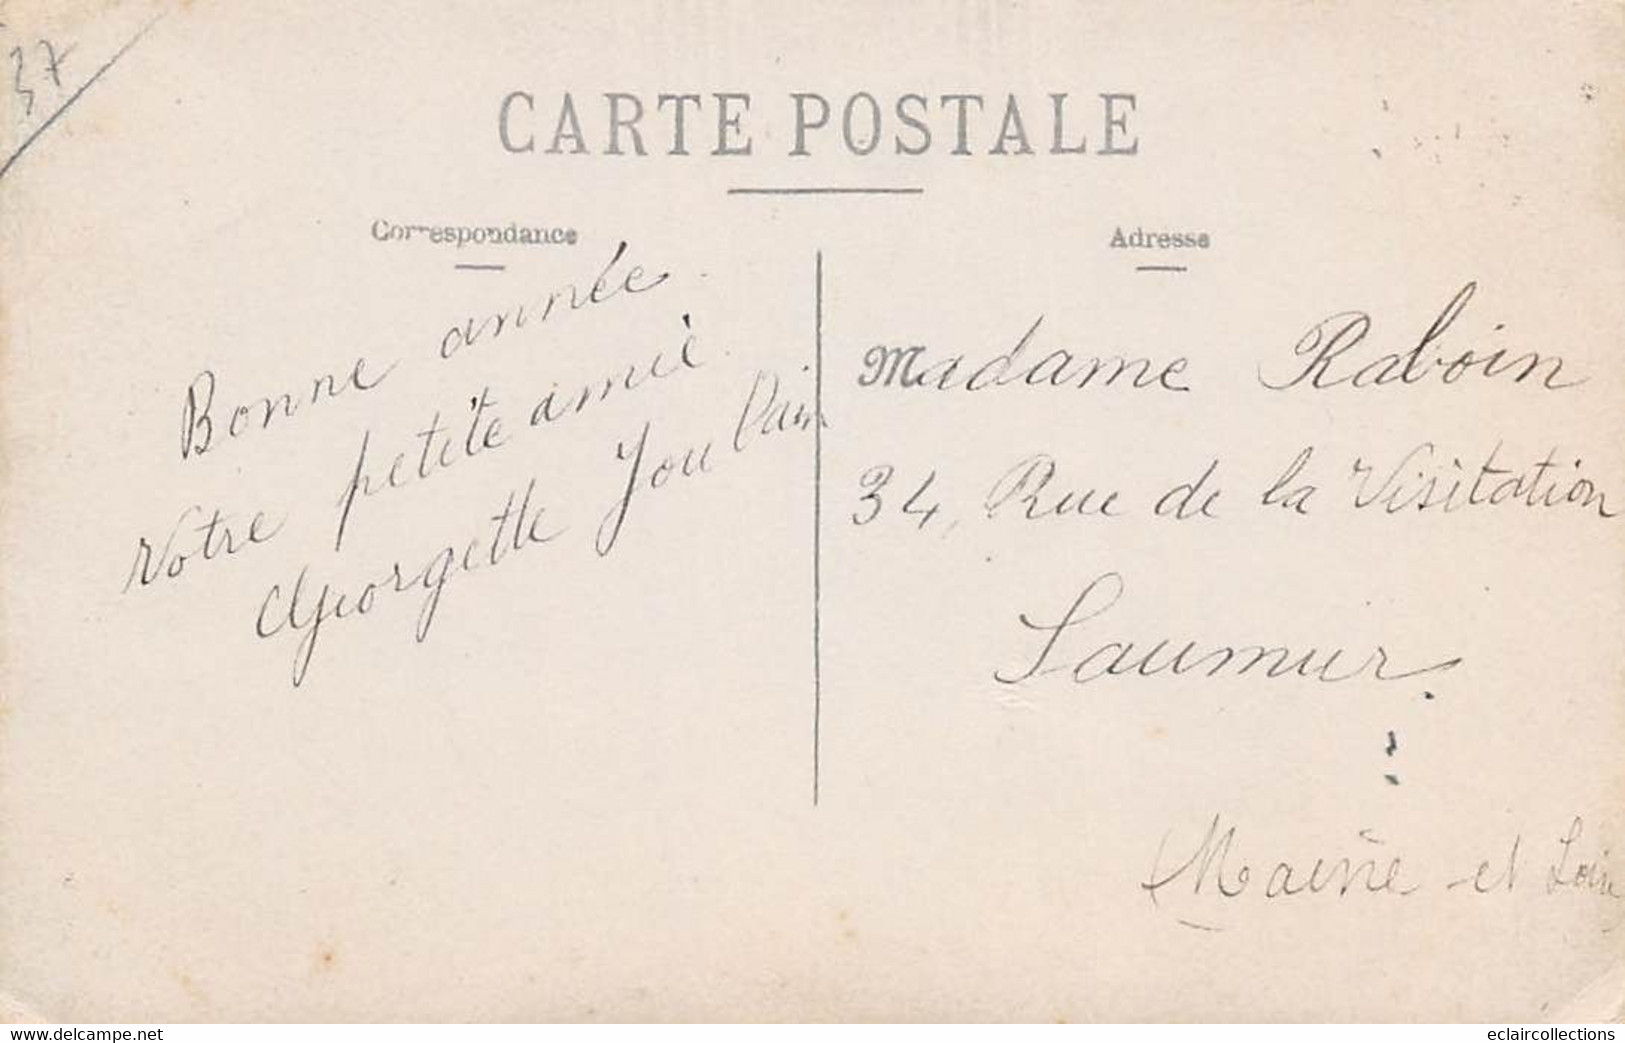 37
CARTE POSTALE
Correspondance
Adresse
Bonne année
Votre petite amie
Georgette Joulain
Madame Raboin
34, Rue de la Visitation
Saumur
Maine et Loire
www.delcampe.net
eclaircollections